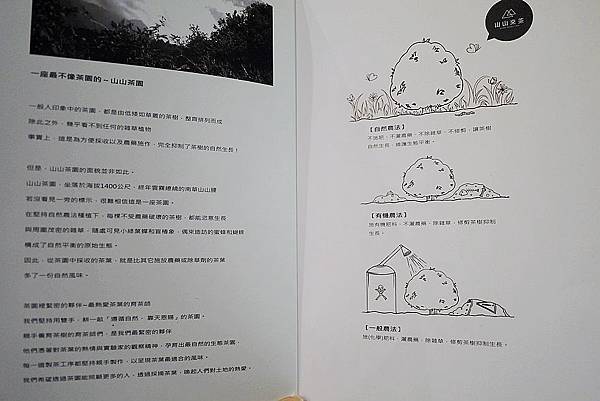 一座最不像茶園的~山山茶園
一般人印象中的茶園，都是由低矮如草叢的茶樹，整齊排列而成
除此之外，幾乎看不到任何的雜草植物
事實上，這是為方便採收以及農藥施作，完全抑制了茶樹的自然生長！
但是，山山茶園的面貌並非如此。
山山茶園，坐落於海拔1400公尺、終年雲霧繚繞的南草山山腰
若沒看見一旁的標示，很難相信這是一座茶園。
在堅持自然農法種植下，每棵不受農藥破壞的茶樹，都能恣意生長
與周圍茂密的雜草，隨處可見小綠葉蟬和盲椿象，偶來造訪的蜜蜂和蝴蝶
構成了自然平衡的原始生態。
因此，從茶園中採收的茶葉，就是比其它施放農藥或除草劑的茶葉
多了一份自然風味。
茶園裡緊密的夥伴~最熱愛茶葉的育茶師
我們堅持用雙手，耕一畝「遵循自然，靠天恩賜」的茶園。
親手養育茶樹的育茶師們，是我們最緊密的夥伴
他們憑著對茶葉的熱情與實驗家的觀察精神，孕育出最自然的生態茶園，
每一道製茶工序都堅持親手製作，以呈現茶葉最適合的風味。
我們希望透過茶園能照顧更多的人，透過採摘茶葉，喚起人們對土地的熱愛。
山山來茶
【自然農法】
不施肥、不灑農藥、不除雜草、不修剪，讓茶樹
自然生長，維護生態平衡。
【有機農法】
施有機肥料，不灑農藥、除雜草，修剪茶樹抑制
生長。
【一般農法】
施(化學)肥料，灑農藥，除雜草，修剪茶樹抑制生長。